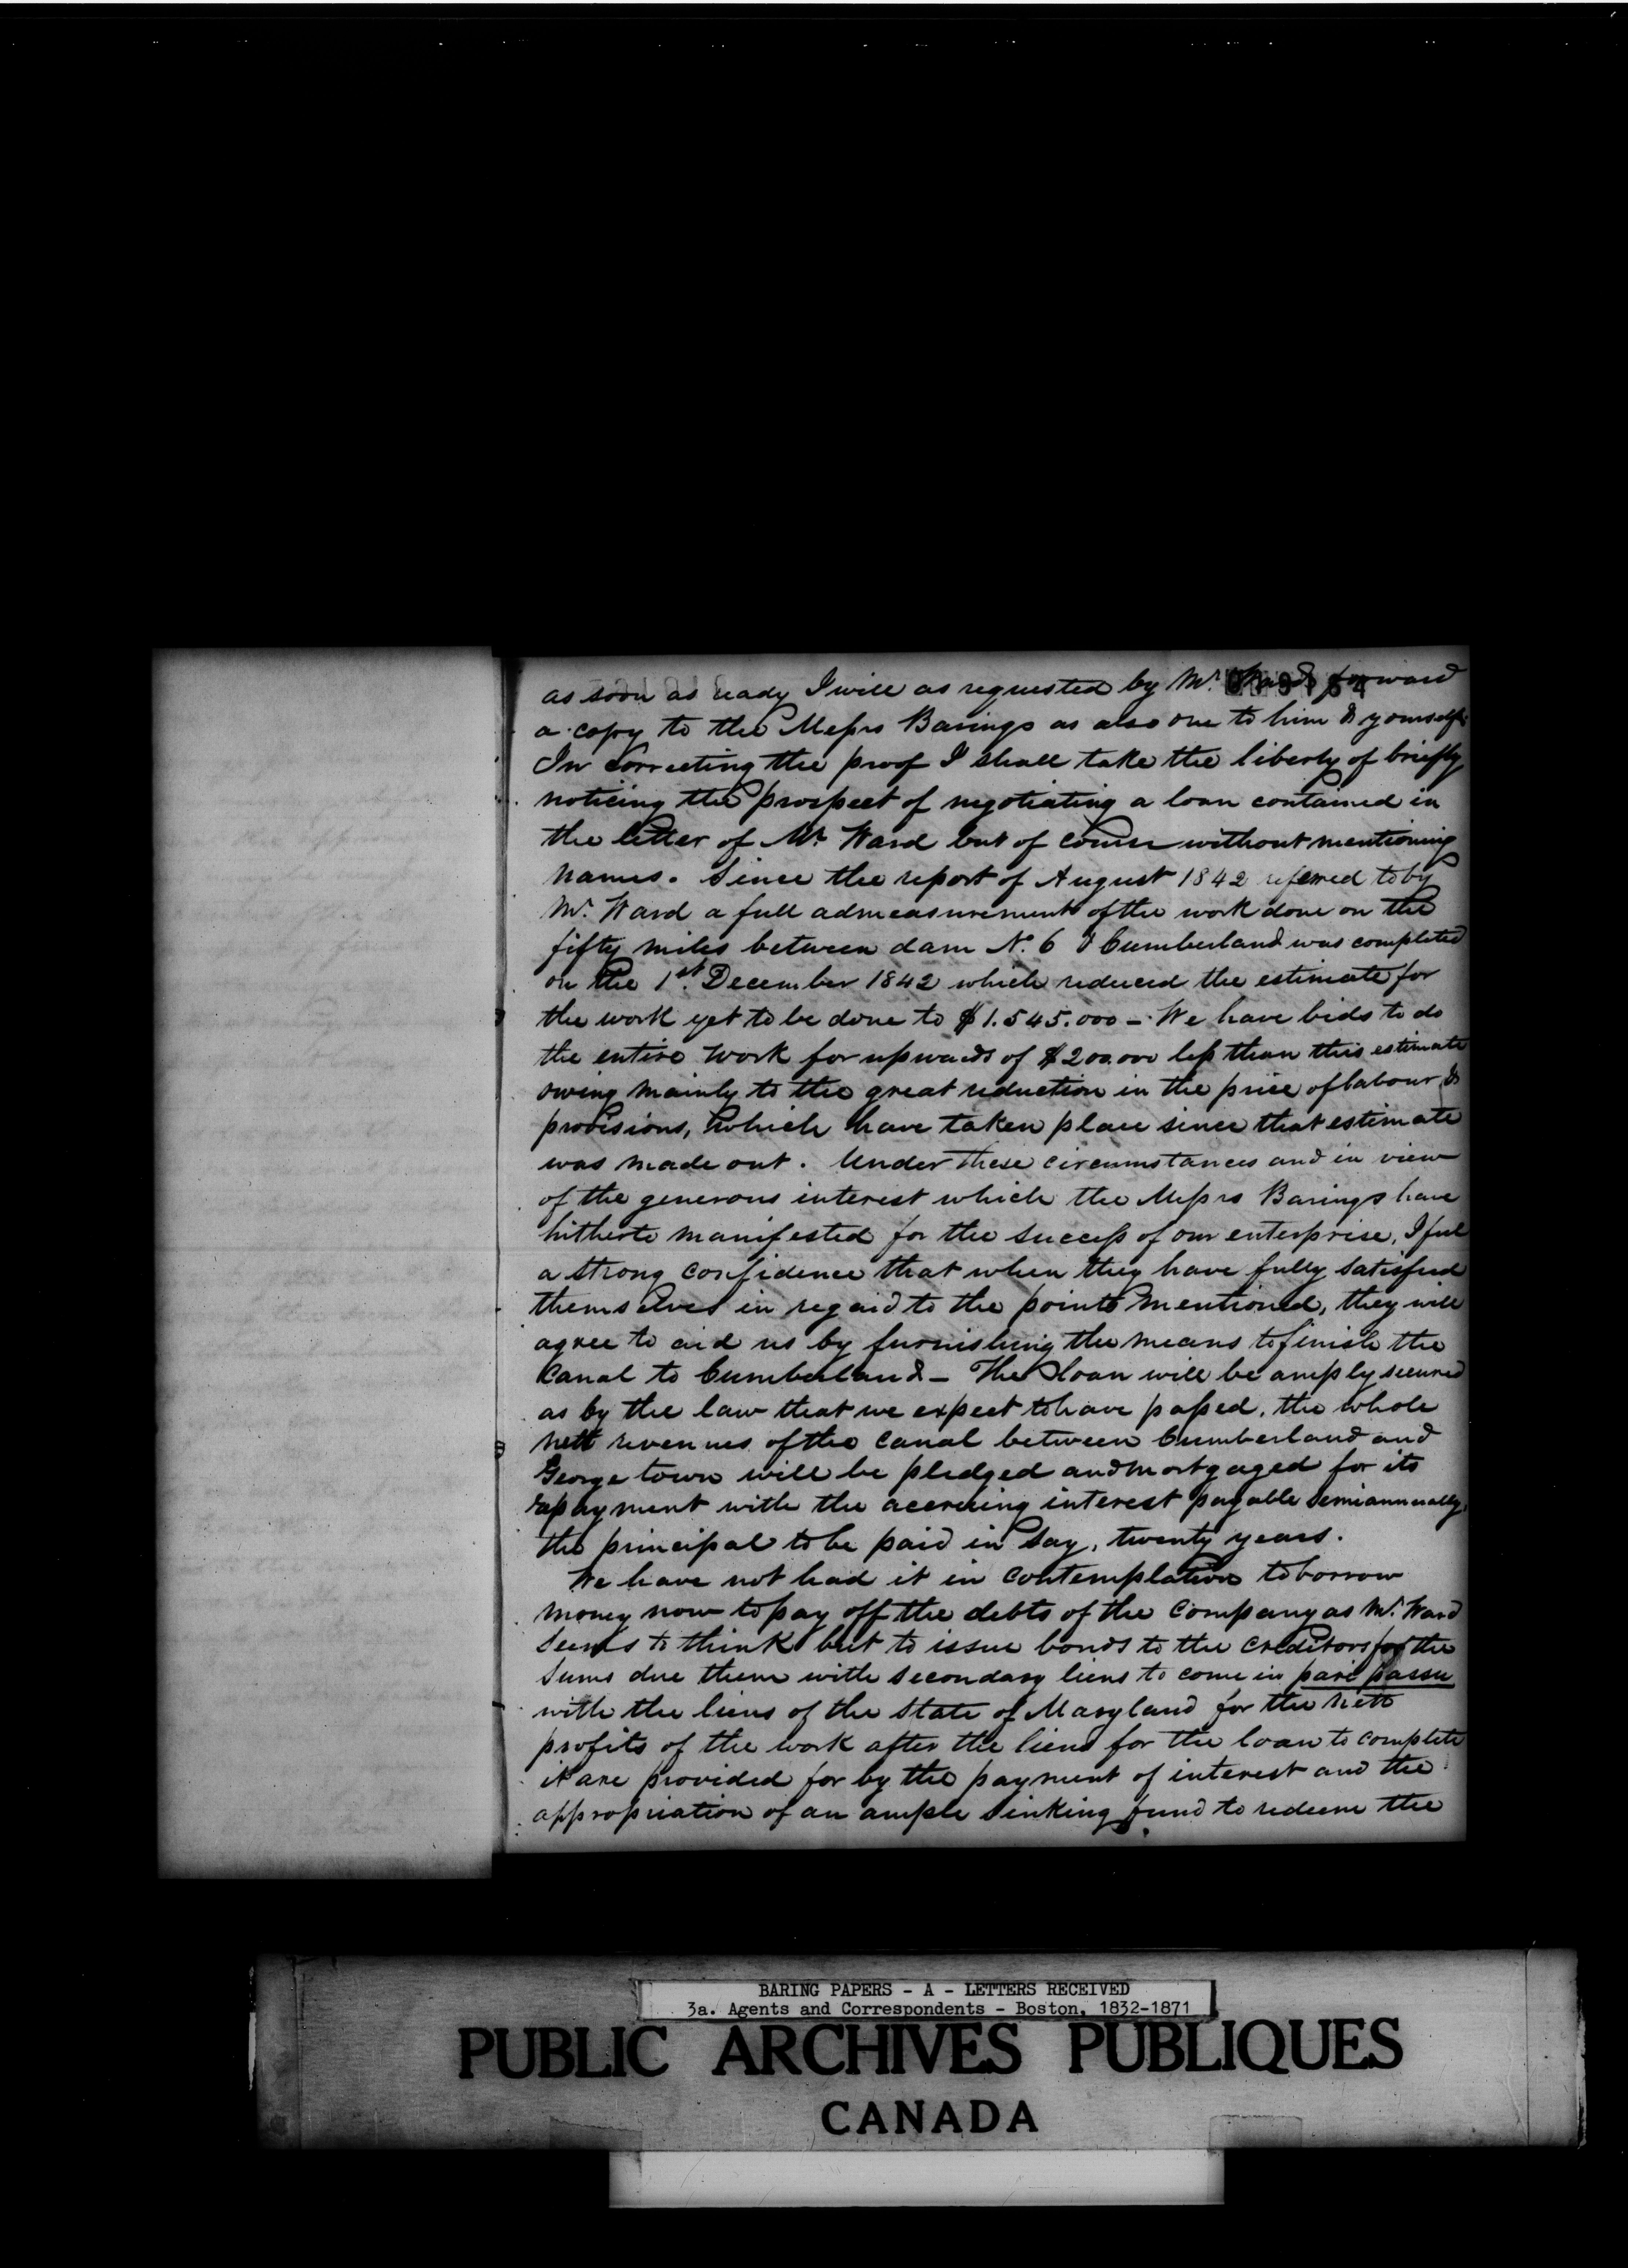 as soon as ready I will as requested by Mr. Ward forward
a copy to the Messrs Barings as also one to him & yourself.
In correcting the proof I shall take the liberty of briefly
noticing the prospect of negotiating a loan contained in
the letter of Mr. Ward but of course without mentioning
names. Since the report of August 1842 referred to by
Mr. Ward a full admeasurement of the work done on the
fifty miles between dam No. 6 & Cumberland was completed
on the 1st. December 1842 which reduced the estimate for
the work yet to be done to $1.545.000 – We have bids to do
the entire work for upwards of $200.000 less than this estimate
owing mainly to the great reduction in the price of labour &
provisions, which have taken place since that estimate
was made out. Under these circumstances and in view
of the generous interest which the Messrs Barings have
hitherto manifested for the success of our enterprise, I feel
a strong confidence that when they have fully satisfied
themselves in regard to the points mentioned, they will
agree to aid us by furnishing the means to finish the
Canal to Cumberland – The loan will be amply secured
as by the law that we expect to have passed, the whole
nett revenues of the Canal between Cumberland and
George town will be pledged and mortgaged for its
repayment with the accruing interest payable semiannually,
the principal to be paid in say, twenty years.
We have not had it in contemplation to borrow
money now to pay off the debts of the Company as Mr. Ward
seems to think but to issue bonds to the creditors for the
sums due them with secondary liens to come in pari passu
with the liens of the State of Maryland for the nett
profits of the work after the liens for the loan to complete
it are provided for by the payment of interest and the
appropriation of an ample sinking fund to redeem the
BARING PAPERS - A - LETTERS RECEIVED
3a. Agents and Correspondents - Boston, 1832-1871
PUBLIC ARCHIVES PUBLIQUES
CANADA